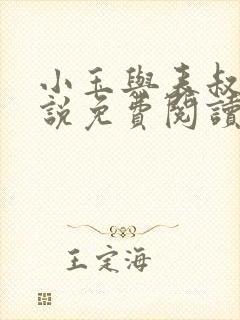 小玉與表叔
說免費閱讀
王定海